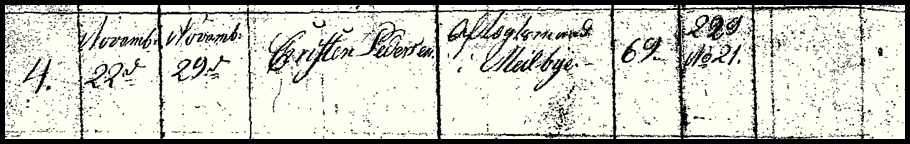 4.
Novemb: 22d
Novemb: 29d
Christen Pedersen.
Aftægtsmand
i Meilbye.
69
229
No 21.